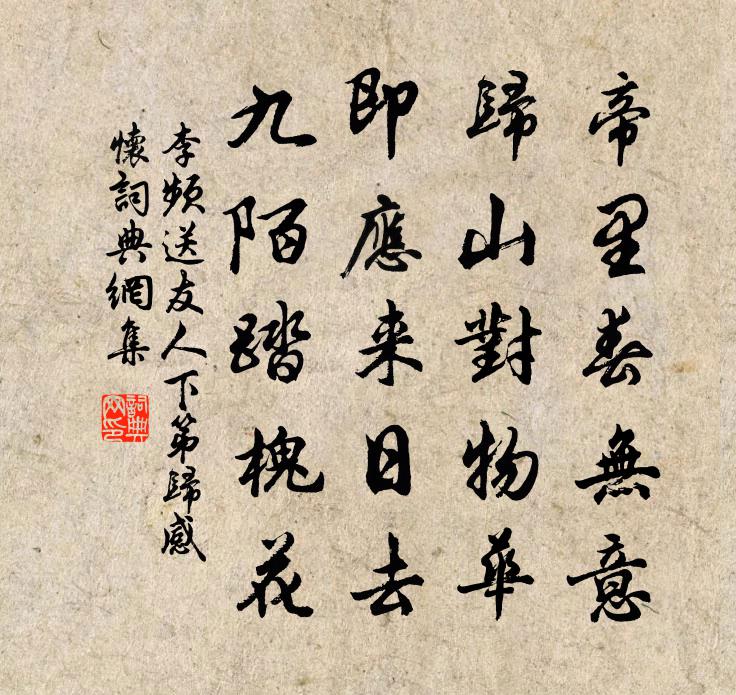 帝里春無意
歸山對物華
即應来日去
九陌踏槐花
李頻送友人下第歸感
懷詞典網集
詞典网印